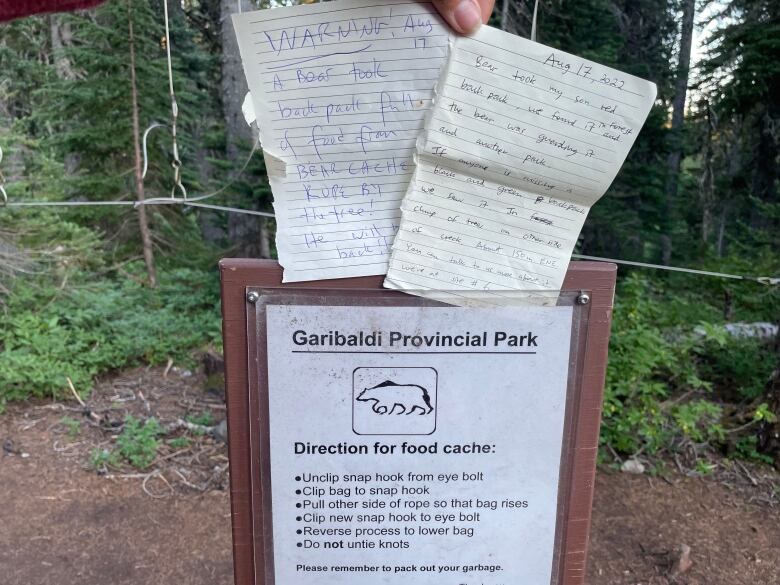 WARNING, Aug
17
A Bear took
back pack full
of food from
BEAR CACHE
ROPE BY
the tree!
He will
back
Aug 17, 2022
Bear took my son red
backpack, we found it in forest
the bear was guarding it
and another pack.
If anyone is missing a
black and green backpack
we saw it In
clump of trees on other side
of creek. About 150m ENE
You can talk to us more about it
we're at site # 6
Garibaldi Provincial Park
Direction for food cache:
•Unclip snap hook from eye bolt
•Clip bag to snap hook
•Pull other side of rope so that bag rises
•Clip new snap hook to eye bolt
•Reverse process to lower bag
•Do not untie knots
Please remember to pack out your garbage.